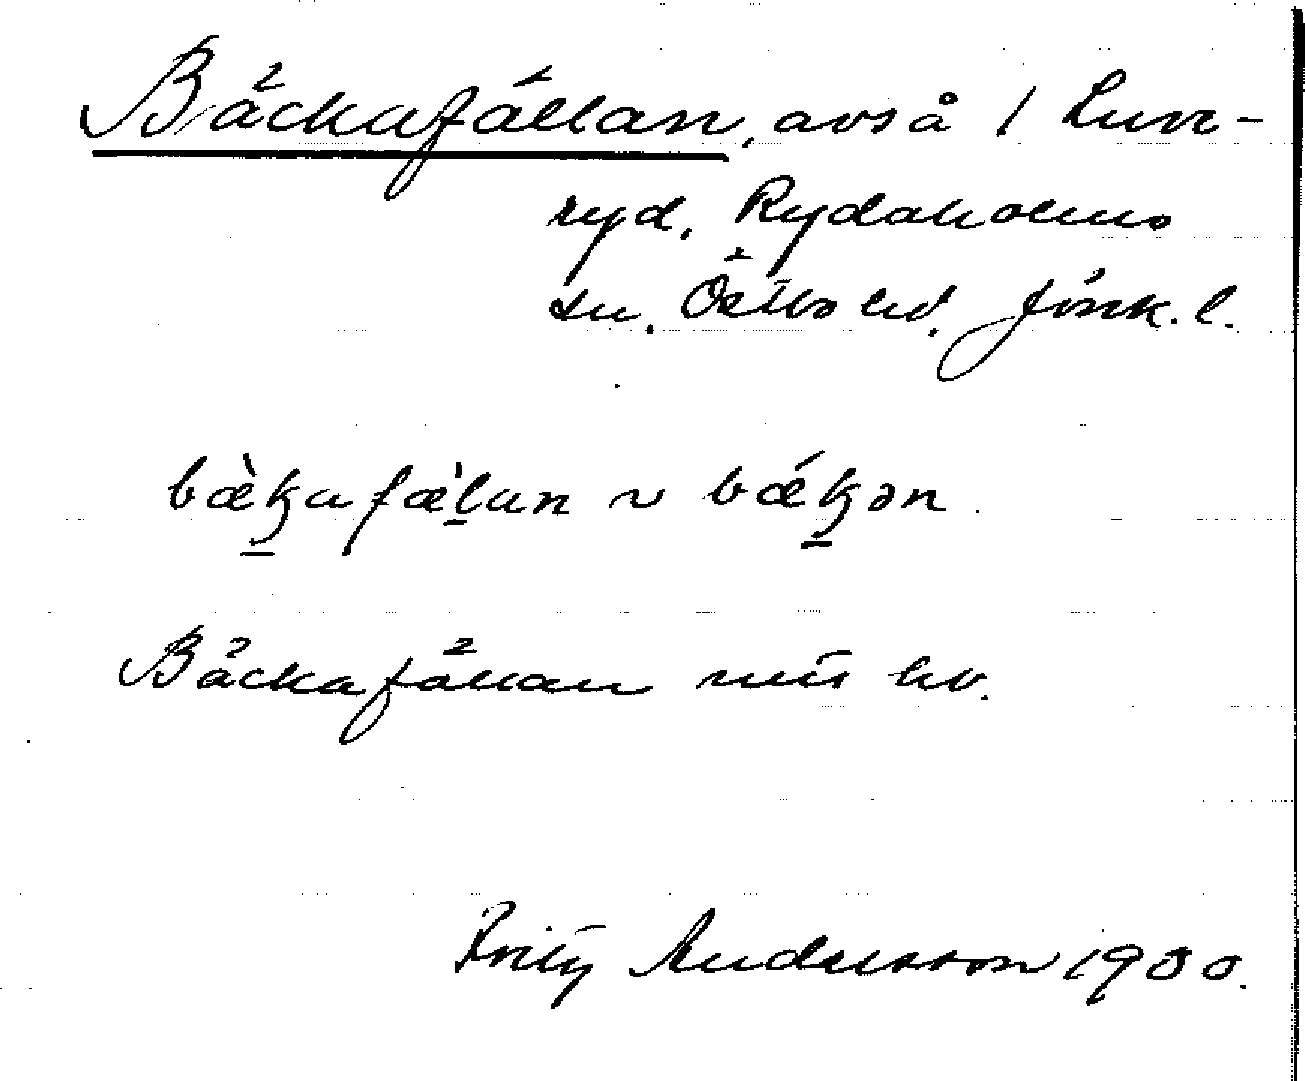 Bäckafällan, avså / Lunn-
ryd, Rydaholms
sn. Östbo hd. Jönk. l.
bæ̀kafæ̀lan ~ bǽkən
Bäckafällan mtš hv.
Fritz Andersson 1930.